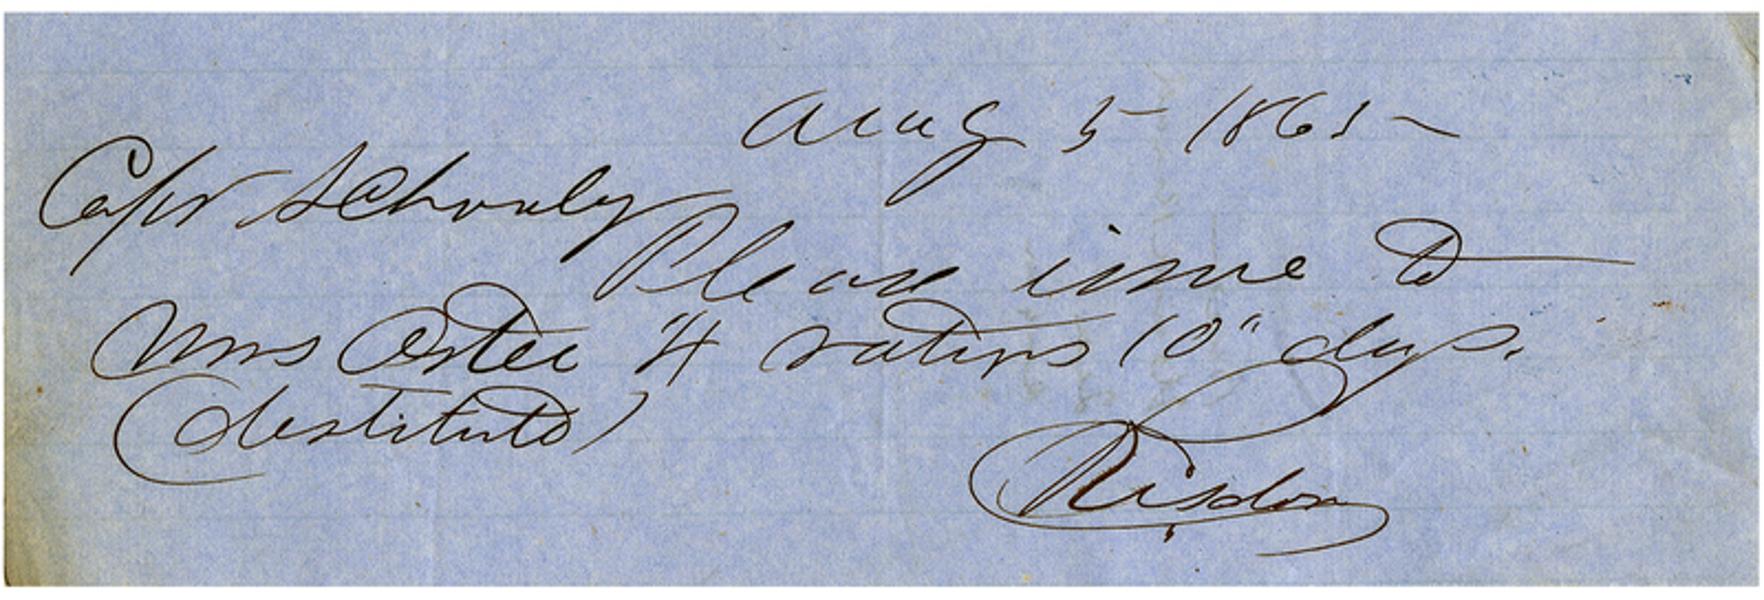 Aug 5 - 1865 -
Capt Schooly
Please issue to
Mrs Oster "4 rations 10" days.
(destitute)
Risdon